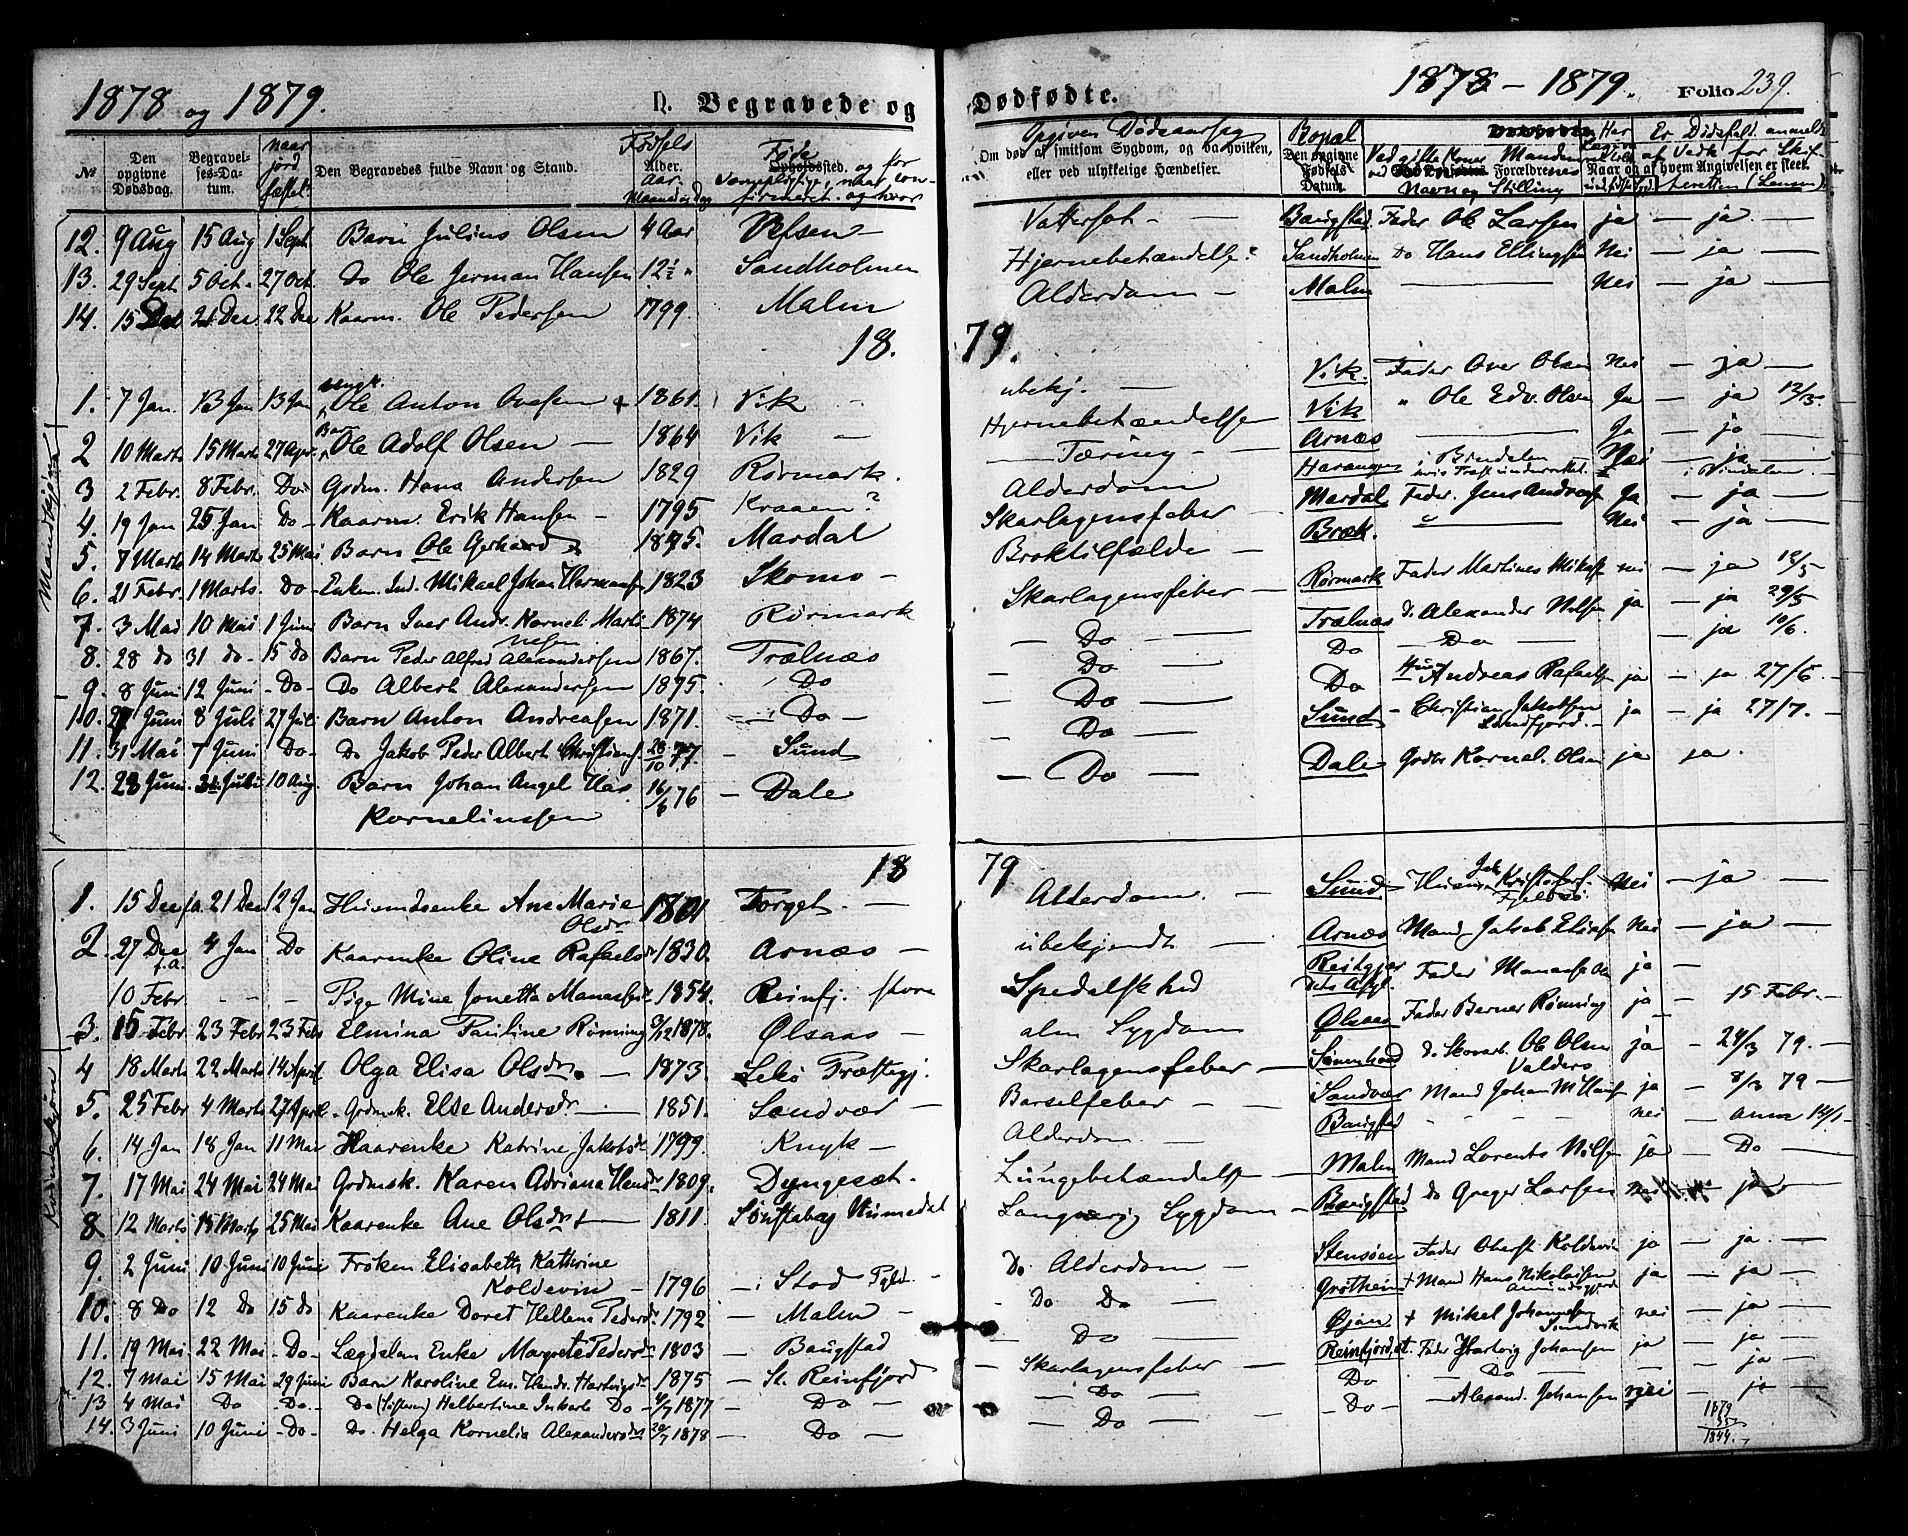 1878 og 1879.
D. Begravede og
Dødfødte.
1878 – 1879.
Folio 239.
No
Den opgivne Dødsdag.
Begravelses-Datum.
naar jord fæstet
Den Begravedes fulde Navn og Stand.
Fødsels Alder. Aar.
Føde
Om død af smitsom Sygdom, og da hvilken, eller ved ulykkelige Hændelser.
Bopæl
Naar og af hvem Angivelsen er skeet.
Mandkjøn
12. 9 Aug 15 Aug 1 Sept. Barn Julius Olsen 4 Aar Vefsen – Vattersot – Baugstad Fader Ole Larsen ja – ja
13. 29 Sept. 5 Oct. 27 Oct. Do Ole Jerman Hansen 12½ " Sandholmen Hjernebetændelse? Sandholmen Do Hans Ellingsen Nei – ja –
14. 15 22 Dec Kaarm. Ole Pedersen 1799. Malm Alderdom – Malm Nei – ja
18.79.
1. 7 Jan. 13 Jan 13 Jan Ungk. Ole Anton Ovesen 1861. Vik – ubekj. – Vik. Fader Over Olsen Nei – ja –
2 10 Marts 15 Marts 27 Apr. Barn Ole Adolf Olsen – 1864 Vik – Hjernebetændelse Vik " Ole Edv. Olsen Ja – ja 12/3.
3 2 Febr. 8 Febr. Do Gdm. Hans Andersen 1829 Rørmark. – Tæring – Arnæs Ja – ja
4. 19 Jan 25 Jan Do – Kaarm. Erik Hansen – 1795 Kraaen? Alderdom Harangen i Bindalen Nei – ja i Bindalen
5. 7 Marts 14 Marts 25 Mai Barn Ole Gerhard 1875. Mardal Skarlagensfeber – Mardal Fader Jens Andreas Ja – ja –
6. 21 Febr. 1 Marts. Do – Enkem. Ind. Mikael Johan Hermansen 1823 Skomo – Broktilfælde – Bræk. " Nei – ja –
7. 3 Mai 10 Mai 1 Juni Barn Iver Andr. Korneli. Martinesen 1874 Rørmark Skarlagensfeber – Rørmark Fader Martines Mikals nei – ja 12/5
8. 28 Do 31 Do. 15 Do Barn Peder Alfred Alexandersen 1867. Trælnæs – Do – Trælnæs d. Alexander Nilsen ja – ja 29/5
9. 8 Juni 12 Juni – Do – Do Albert Alexandersen 1875. Do Do – Do – Do – ja 10/6.
10. 27 Juni 8 Juli 27 Juli Barn Anton Andreasen 1871. – Do – Do – Do Andreas Rafaels ja – ja 27/6
11. 31 Mai 7 Juni Do – Do Jakob Peder Albert Christians. 28/10 77. – Sund – Do – Sund – Christian Jakobsen Sundfjord. – ja – ja 27/7.
12. 28 Juni Juli 10 Aug. Barn Johan Angel Has Kornelinssen 16/6 76 – Dale – Do – Dale Kornel. Olsen ja ja.
Kvindekjøn
18 79
1. 15 Dec f.a. 21 Dec 12 Jan Husmdsenke Ane Marie Olsdr 1801 Torget. – Alderdom. – Sund Husm. Jak Kristofers. Fjeldsø. Nei – ja –
2. 27 Dec f.a. 4 Jan Do Kaarenke Oline Rafaelsdr 1830. Arnæs – ubekjendt – Arnæs Mand Jakob Eliasen Nei – ja –
10 Febr – – – Pige Mine Jonetta Manassesdr 1854. Reinfj. store Spedalskhed Fader Manasse Ols ja –
3. 15 Febr 23 Febr 23 Febr Elmina Pauline Rønning 3/12 1878. Ølsaas – alm Sygdom Ølsaas Fader Berner Rønning ja – 15 Febr. –
4 18 Marts 22 Marts 14 April Olga Elisa Olsdr. – 1873. Lekø Præstegj. Skarlagensfeber – d. Skovarb. Ole Olsen Valders ja – 24/3 79. –
5. 25 Febr 4 Marts 27 April – Grdmsk. Else Andersdr – 1851. Sandvær – Barselfeber – Sandvær Mand Johan ja – 8/3 79 –
6. 14 Jan 18 Jan 11 Mai Kaarenke Katrine Jakobsdr 1799. Knyk – Alderdom. – Baugstad nei – anm
7. 17 Mai 24 Mai 24 Mai Grdmsk. Karen Adriana Hansdr 1809. Dyngesæt. Lungebetændelse – Malm Mand Lorents Nilsen ja – Do
8 12 Marts 15 Marts 25 Mai Kaarenke Ane Olsdr – 1811. Langvarig Sygdom – Baugstad do Greger Larsen nei – ja
9. 2 Juni 10 Juni 10 Juni Frøken Elisabeth Kathrine Koldevin – 1796 – i Stod Fgld. – Do Alderdom – Stensøen Fader Oberst Koldevin ja – ja. –
10. 8 Do 12 Do 15 Do Kaarenke Doret Hellena Pedersdr. 1792 – Malm – – Do Do – Grøtheim + Mand Hans Nikolaisen ja – ja –
11. 19 Mai 22 Mai – Do – Lægdslem Enke Margrete Pedersdr 1803 – Baugstad – Do – Øjan + Mikel Johannesen Sundvik nei – ja –
12. 7 Mai 15 Mai 29 Juni Barn Karoline Em. Hendr. Hartvigsdr 1875 – St. Reinfjord – Skarlagensfeber – Reinfjord st. Fader Hartvig Johansen ja – ja
13 4 Mai Do – Do. – Do (Søstrene) Helbertine Do – 4/7 1877 – Do – – Do – Do – Do – – ja –
14. 3 Juni 10 Juni – Do – Do. Helga Kornelia Alexandersdr 20/7 1878 – Do – – Do – – Do – – Alexand. Johansen nei – ja –
1879
35
1844.